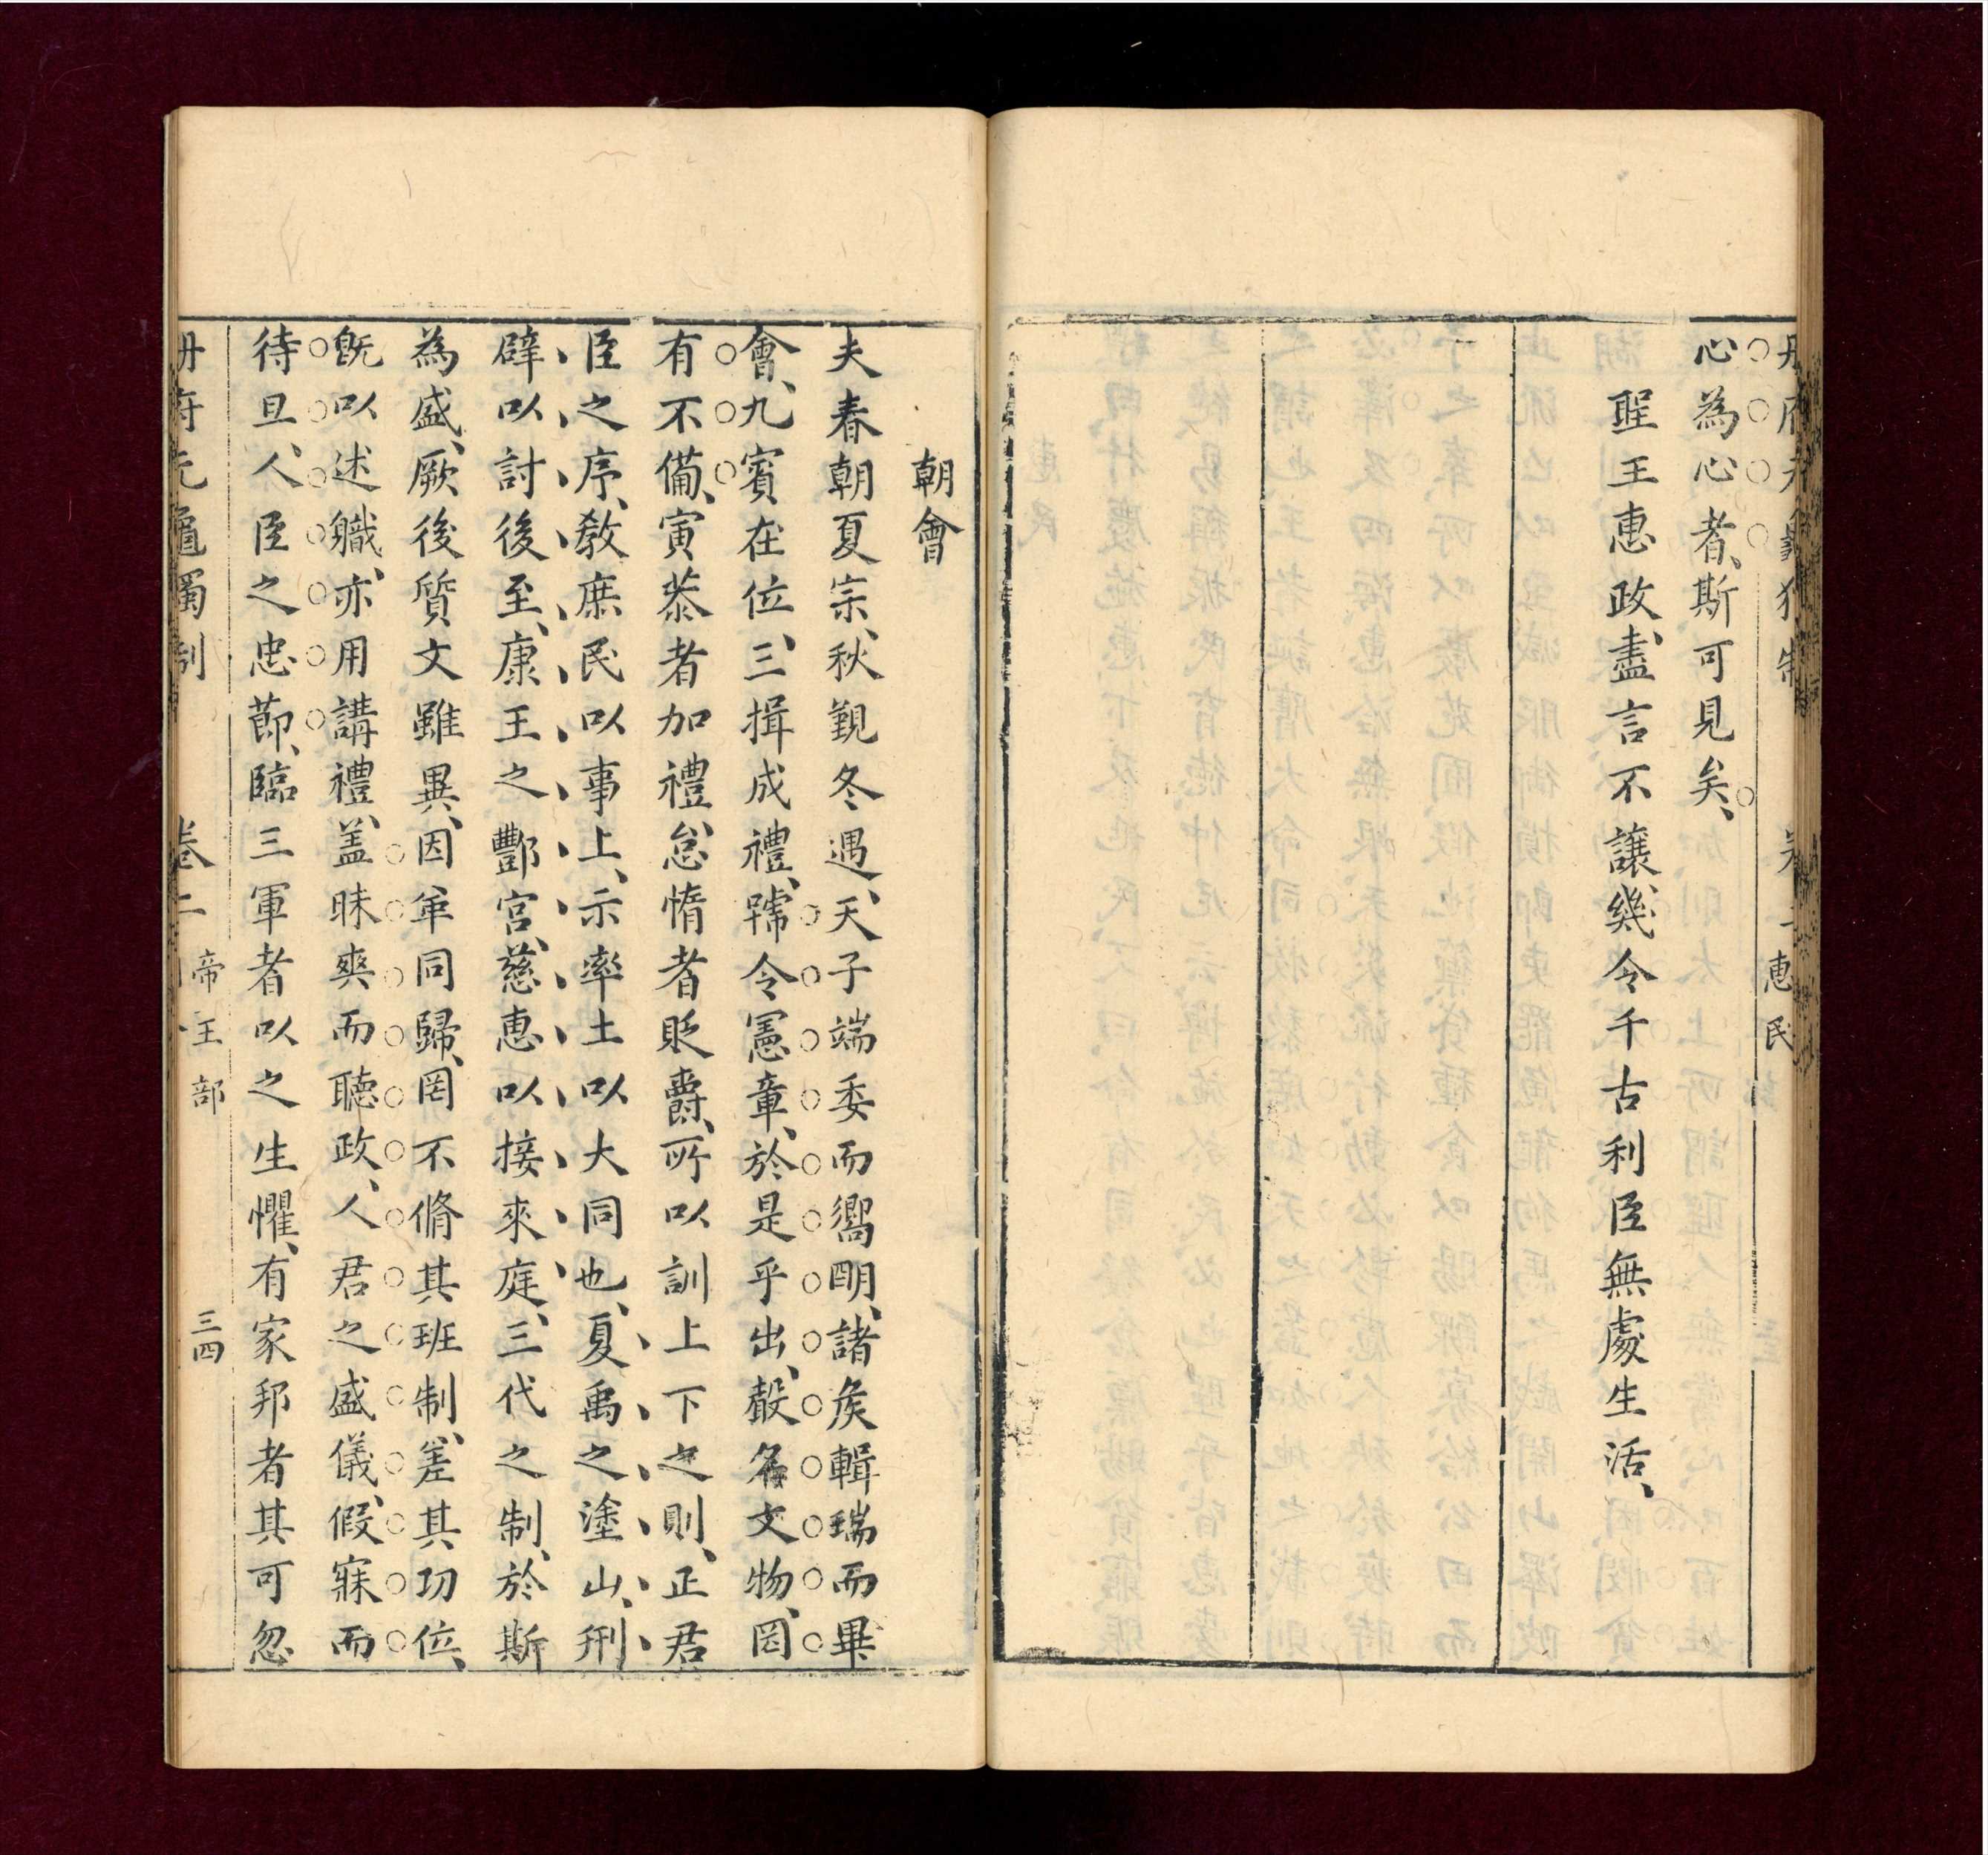 心為心者、斯可見矣、
聖王惠政、盡言不讓、幾令千古利臣無處生活、
惠民
朝會
夫春朝夏宗、秋覲冬遇、天子端委而嚮明、諸矦輯瑞而畢
會、九賓在位、三揖成禮、號令憲章、於是乎出、聲名文物、罔
有不備、寅恭者加禮、怠惰者貶爵、所以訓上下之則、正君
臣之序、教庶民以事上、示率土以大同也、夏禹之塗山、刑
辟以討後至、康王之酆宮、慈惠以接來庭、三代之制、於斯
為盛、厥後質文雖異、因革同歸、罔不脩其班制、差其功位、
既以述職、亦用講禮、盖昧爽而聽政、人君之盛儀、假寐而
待旦、人臣之忠節、臨三軍者以之生懼、有家邦者其可忽
冊府元龜獨制 卷二 帝王部 三四